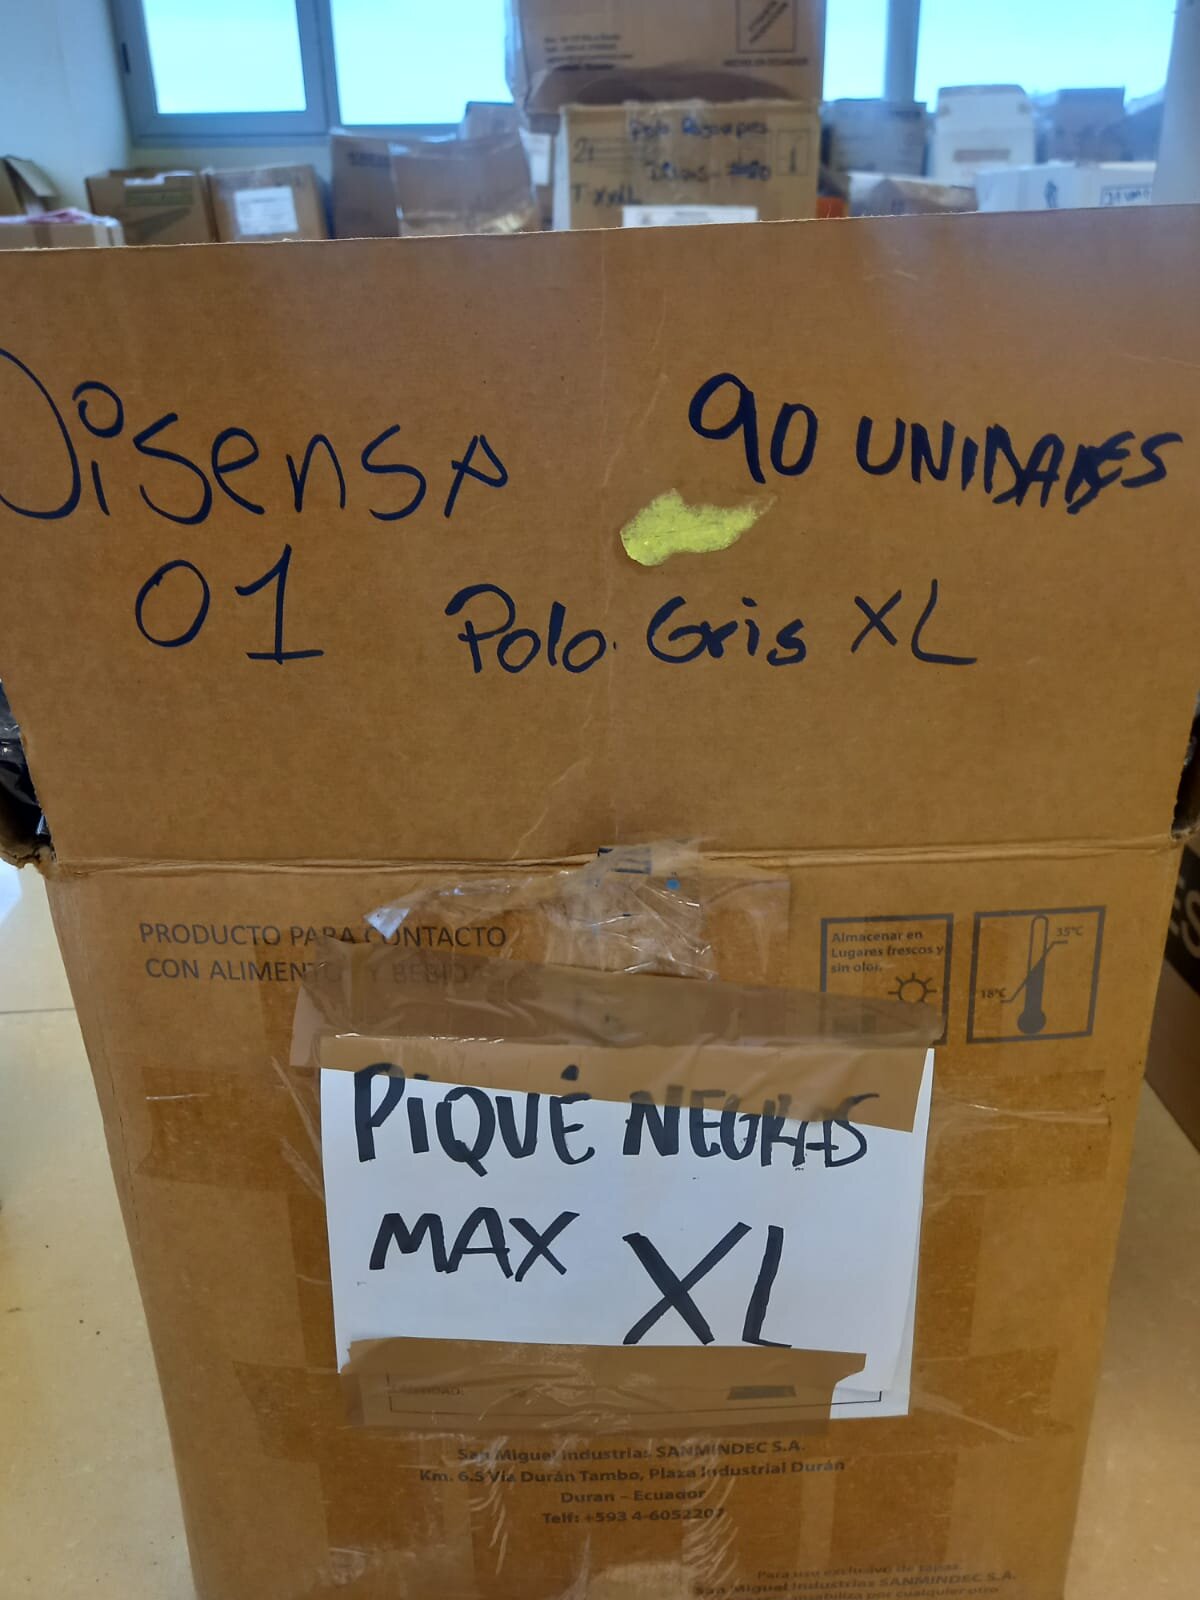 HECHO EN ECUADOR
Polo
T XXXL
Disensa
90 UNIDADES
01
Polo. Gris XL
PRODUCTO PARA CONTACTO
CON ALIMENTOS Y BEBIDAS
Almacenar en
Lugares frescos y
sin olor.
35°C
18°C
PIQUÉ NEGRAS
MAX XL
San Miguel Industrias SANMINDEC S.A.
Km. 6.5 Vía Durán Tambo, Plaza Industrial Durán
Duran – Ecuador
Telf: +593 4-6052207
Para uso exclusivo de tapas
San Miguel Industrias SANMINDEC S.A.